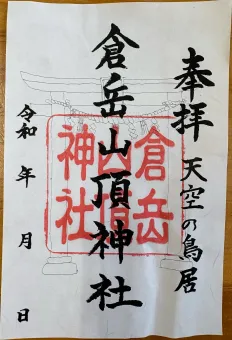 奉拝 天空の鳥居
倉岳山頂神社
令和 年 月 日
倉岳
神社